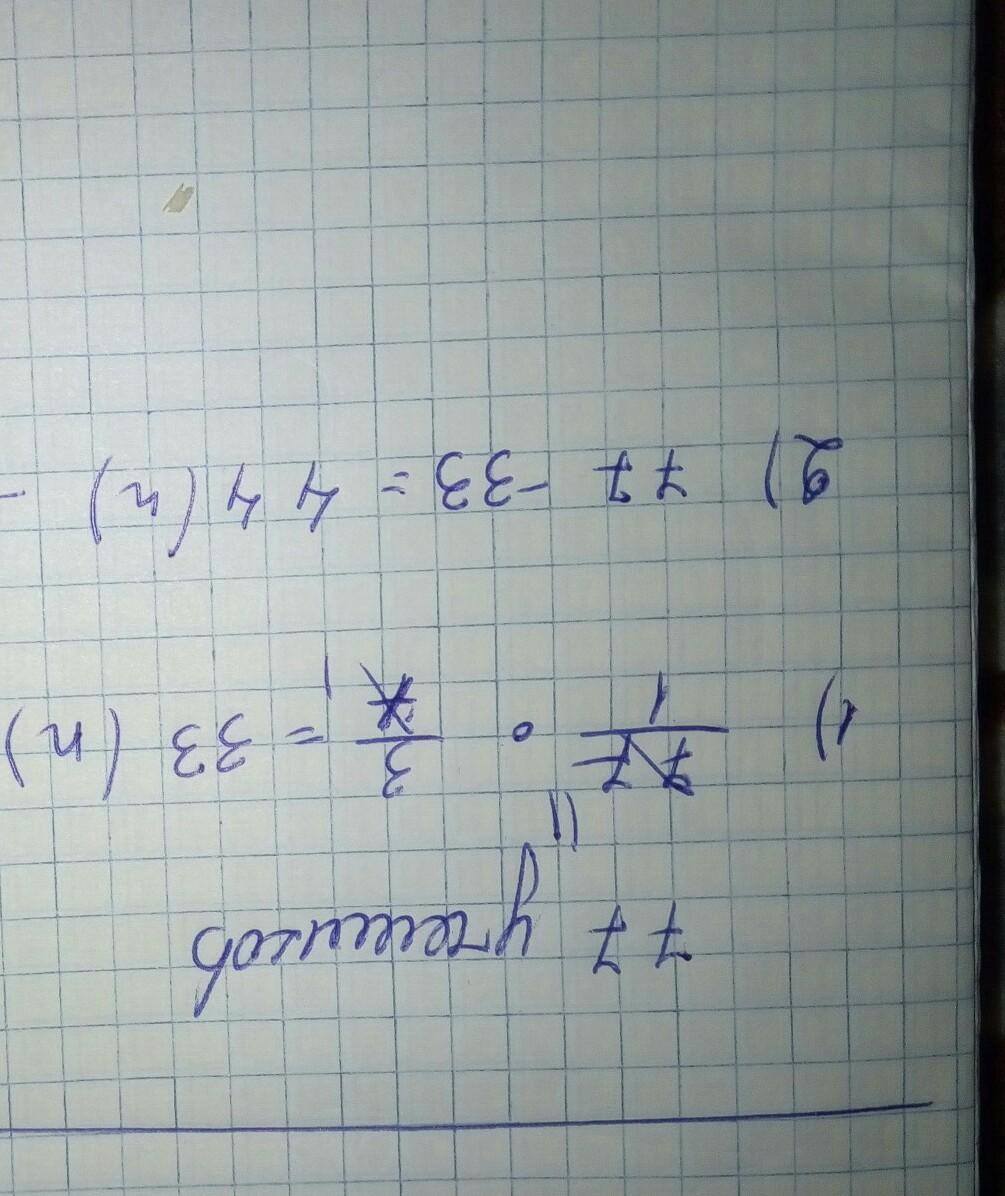 77 учеников
11
1) 77/1 · 3/7 1 = 33 (ч)
2) 77 - 33 = 44 (ч) -